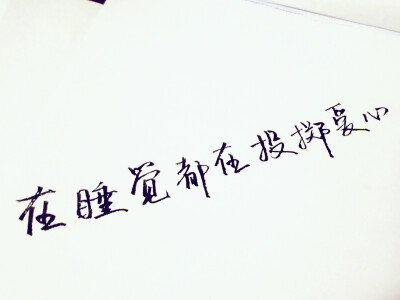 在睡觉都在投掷爱心